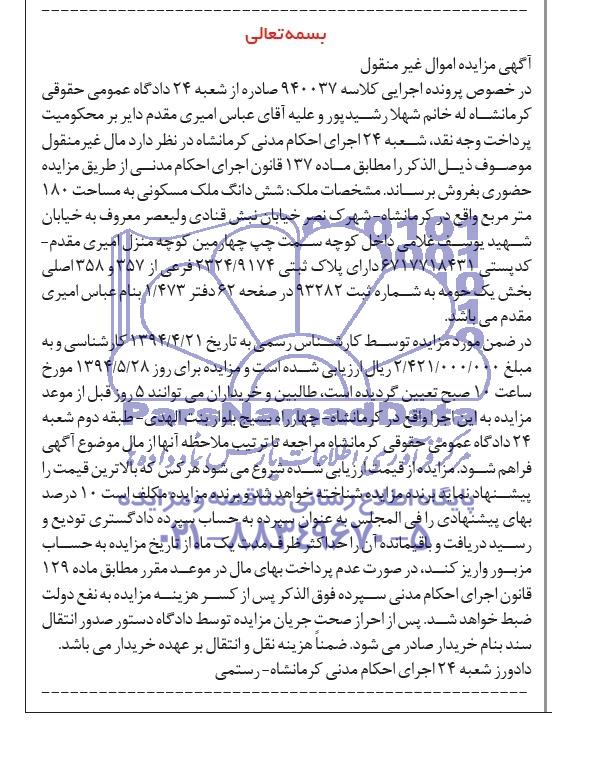 بسمه تعالی
آگهی مزایده اموال غیر منقول
در خصوص پرونده اجرایی کلاسه ۹۴۰۰۳۷ صادره از شعبه ۲۴ دادگاه عمومی حقوقی
کرمانشاه له خانم شهلا رشیدپور و علیه آقای عباس امیری مقدم دایر بر محکومیت
پرداخت وجه نقد، شعبه ۲۴ اجرای احکام مدنی کرمانشاه در نظر دارد مال غیر منقول
موصوف ذیل الذکر را مطابق ماده ۱۳۷ قانون اجرای احکام مدنی از طریق مزایده
حضوری بفروش برساند. مشخصات ملک: شش دانگ ملک مسکونی به مساحت ۱۸۰
متر مربع واقع در کرمانشاه- شهرک نصر خیابان نبش قنادی ولیعصر معروف به خیابان
شهید یوسف غلامی داخل کوچه سمت چپ چهارمین کوچه منزل امیری مقدم-
کدپستی ۶۷۱۷۷۱۸۴۳۱ دارای پلاک ثبتی ۲۳۲۴/۹۱۷۴ فرعی از ۳۵۷ و ۳۵۸ اصلی
بخش یک حومه به شماره ثبت ۹۳۲۸۲ در صفحه ۶۲ دفتر ۱/۴۷۳ بنام عباس امیری
مقدم می باشد.
در ضمن مورد مزایده توسط کارشناس رسمی به تاریخ ۱۳۹۴/۴/۲۱ کارشناسی و به
مبلغ ۲/۴۲۱/۰۰۰/۰۰۰ ریال ارزیابی شده است و مزایده برای روز ۱۳۹۴/۵/۲۸ مورخ
ساعت ۱۰ صبح تعیین گردیده است، طالبین و خریداران می توانند ۵ روز قبل از موعد
مزایده به این اجرا واقع در کرمانشاه- چهارراه بسیج بلوار بنت الهدی- طبقه دوم شعبه
۲۴ دادگاه عمومی حقوقی کرمانشاه مراجعه تا ترتیب ملاحظه آنها از مال موضوع آگهی
فراهم شود. مزایده از قیمت ارزیابی شده شروع می شود هر کس که بالاترین قیمت را
پیشنهاد نماید برنده مزایده شناخته خواهد شد و برنده مزایده مکلف است ۱۰ درصد
بهای پیشنهادی را فی المجلس به عنوان سپرده به حساب سپرده دادگستری تودیع و
رسید دریافت و باقیمانده آن را حداکثر ظرف مدت یک ماه از تاریخ مزایده به حساب
مزبور واریز کنند، در صورت عدم پرداخت بهای مال در موعد مقرر مطابق ماده ۱۲۹
قانون اجرای احکام مدنی سپرده فوق الذکر پس از کسر هزینه مزایده به نفع دولت
ضبط خواهد شد. پس از احراز صحت جریان مزایده توسط دادگاه دستور صدور انتقال
سند بنام خریدار صادر می شود. ضمناً هزینه نقل و انتقال بر عهده خریدار می باشد.
دادورز شعبه ۲۴ اجرای احکام مدنی کرمانشاه- رستمی
ParsNamadData
مرکز فرآوری اطلاعات پارس نماد داده ها
پایگاه اطلاع رسانی مناقصه و مزایده
۰۲۱-۸۸۳۴۹۶۷۰-۵